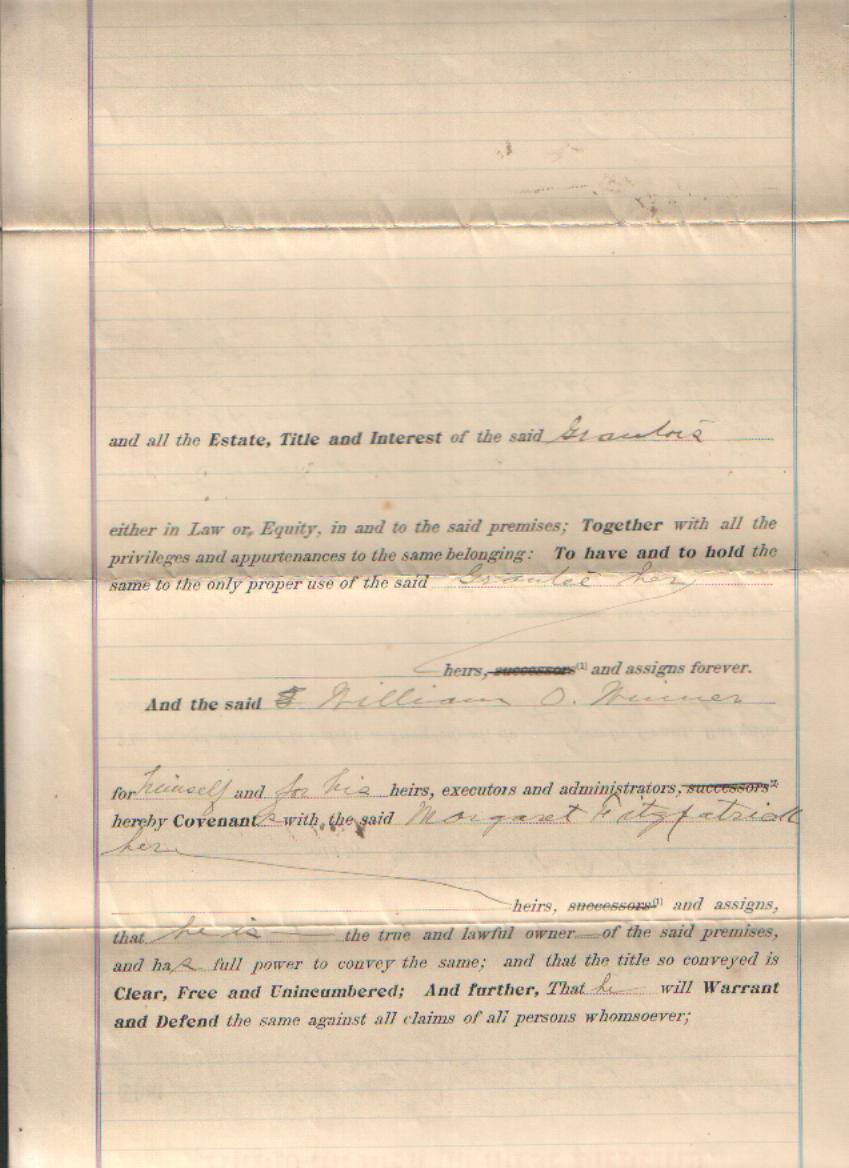 and all the Estate, Title and Interest of the said Grantors
either in Law or, Equity, in and to the said premises; Together with all the
privileges and appurtenances to the same belonging: To have and to hold the
same to the only proper use of the said Grantee her
heirs, successors(1) and assigns forever.
And the said William O. Winner
for himself and for his heirs, executors and administrators, successors
hereby Covenants with the said Margaret Fitzpatrick
her
heirs, successors(1) and assigns,
that he is the true and lawful owner of the said premises,
and has full power to convey the same; and that the title so conveyed is
Clear, Free and Unincumbered; And further, That he will Warrant
and Defend the same against all claims of all persons whomsoever;